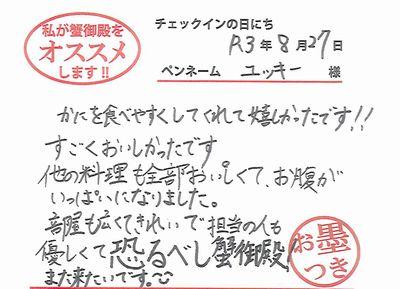 私が蟹御殿を
オススメ
します!!
チェックインの日にち
R3年8月27日
ペンネーム ユッキー 様
かにを食べやすくしてくれて嬉しかったです!!
すごくおいしかったです
他の料理も全部おいしくて、お腹が
いっぱいになりました。
部屋も広くてきれいで担当の人も
優しくて恐るべし蟹御殿!
また来たいです。
お墨
つき